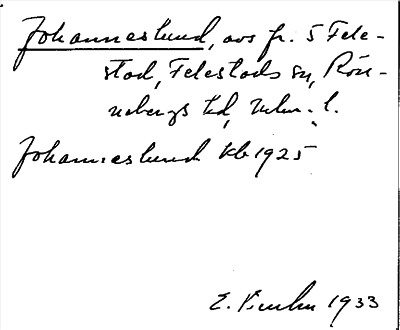 Johanneslund, avs fr. 5 Fele-
stad, Felestads sn, Rön-
nebergs hd, Malm. l.
Johanneslund kb 1925
E. 1933